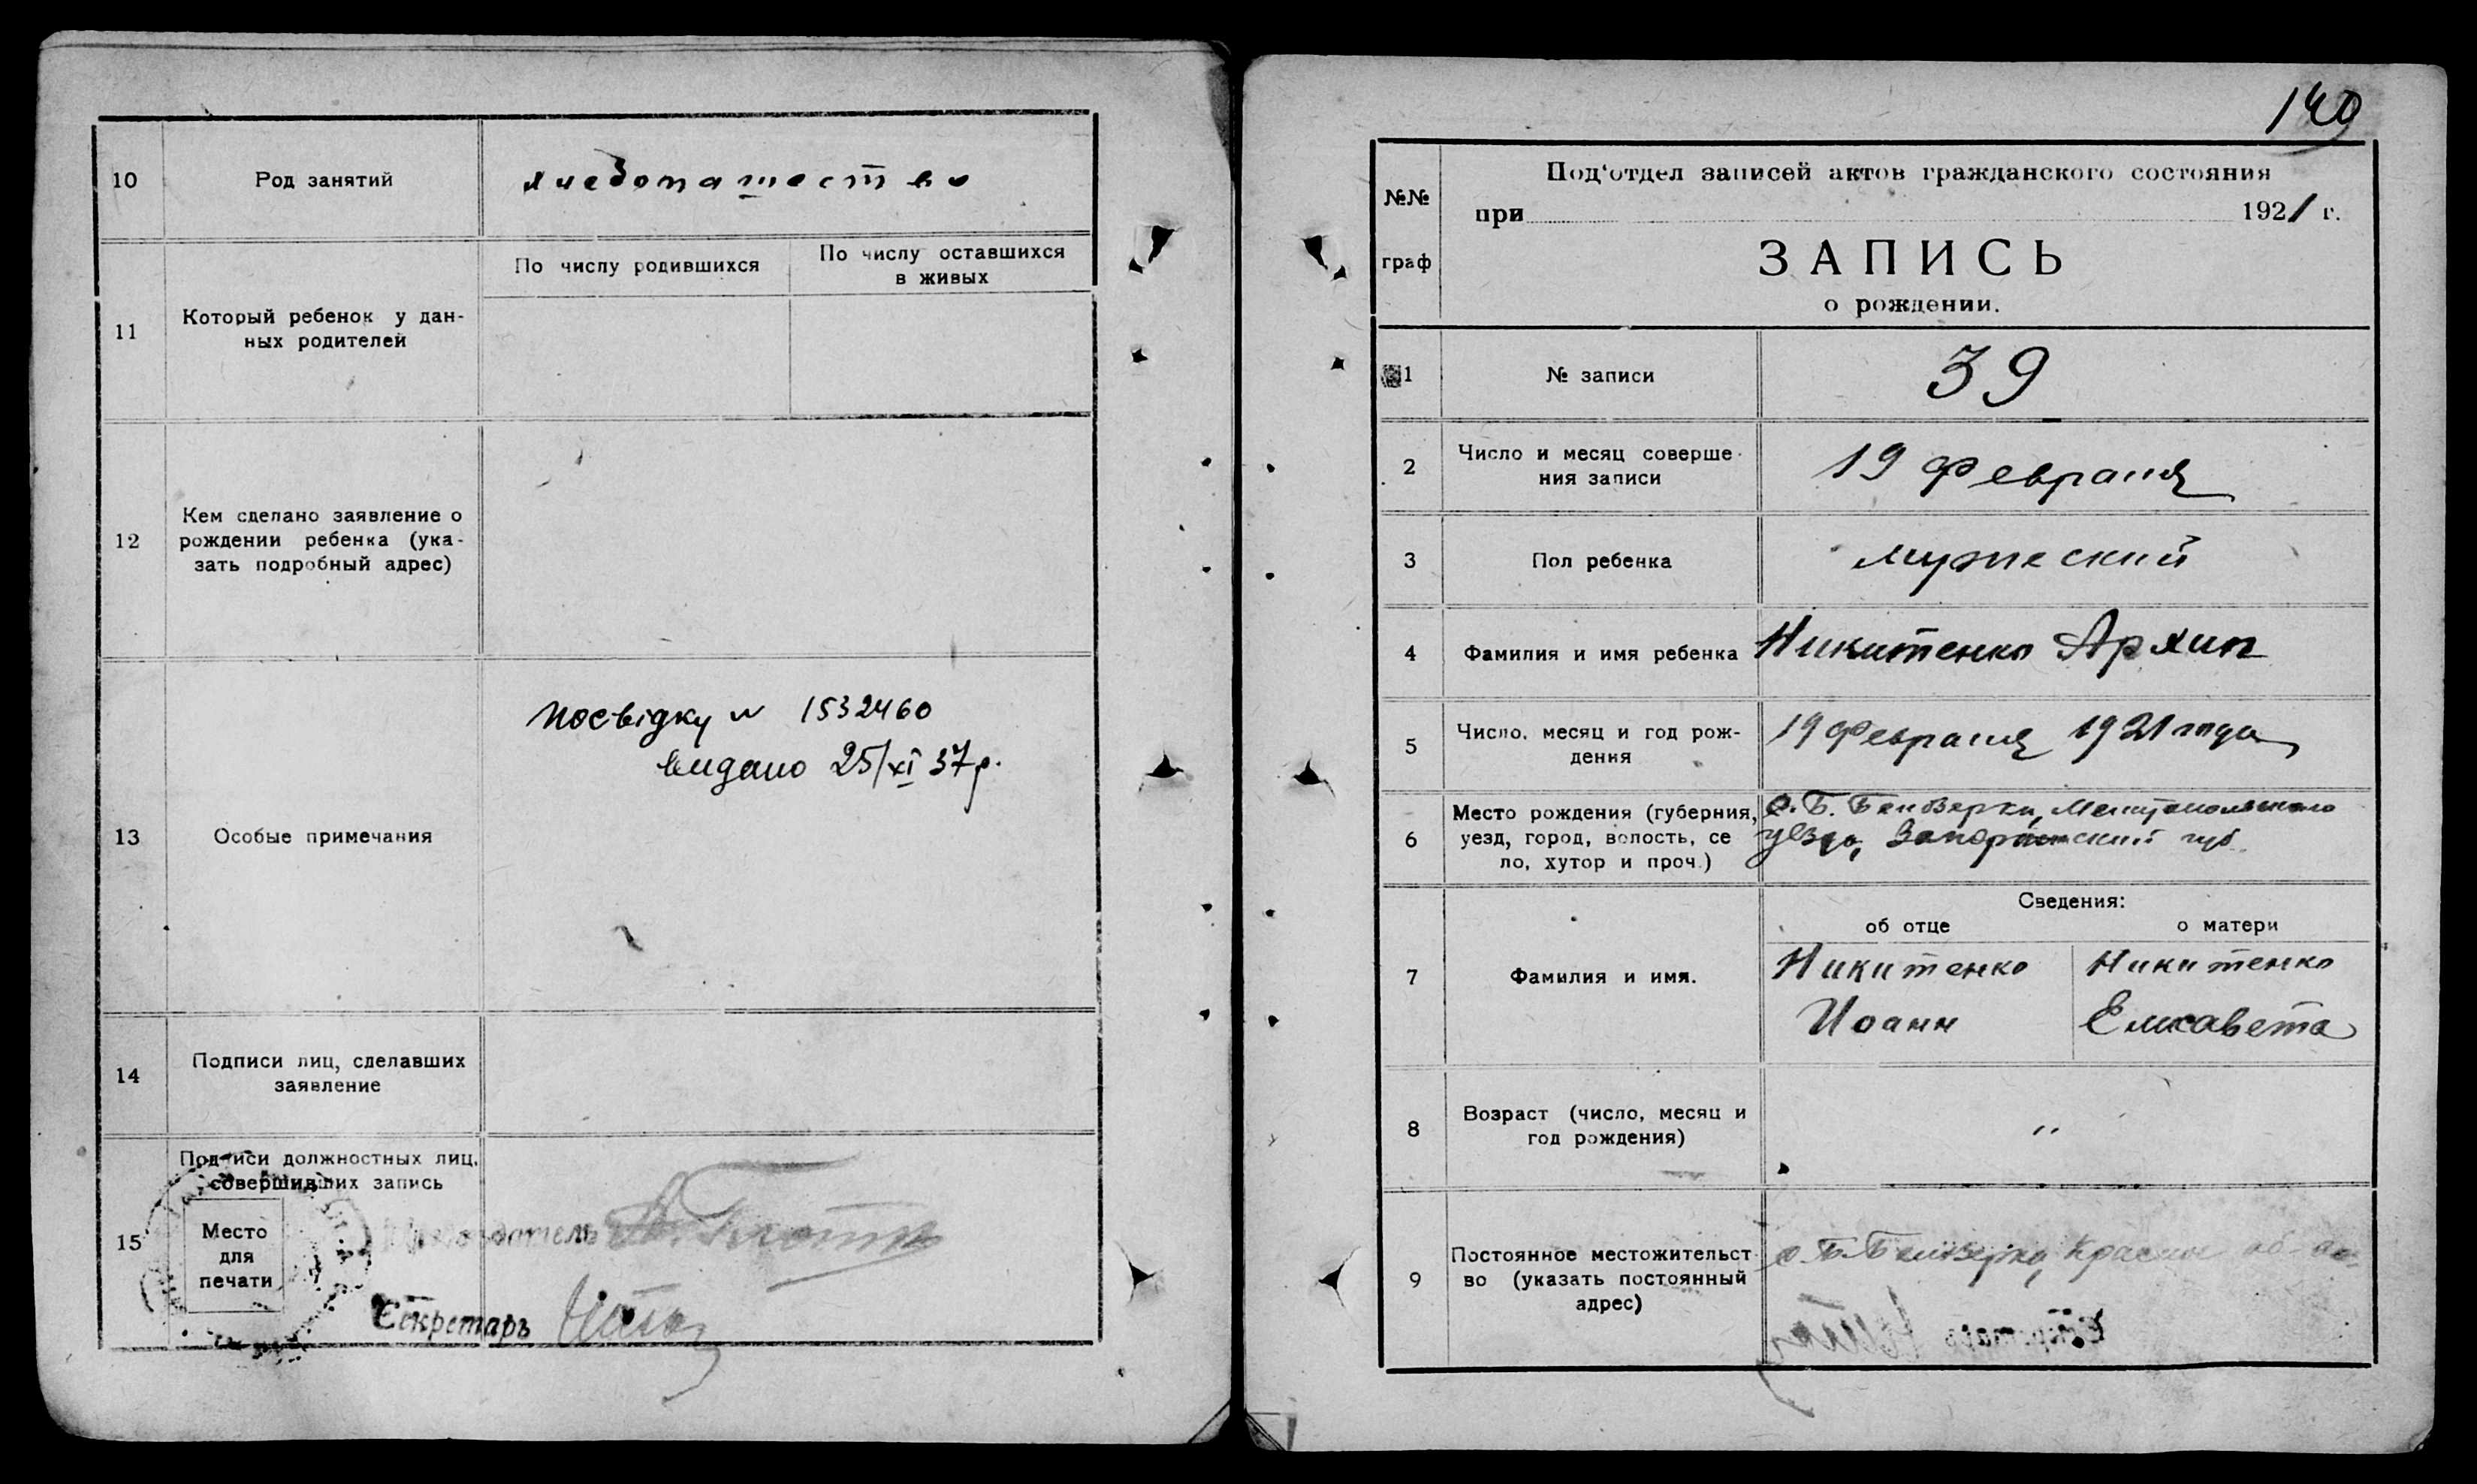 10
Род занятий
хлебопашество
11
Который ребенок у дан-
ных родителей
По числу родившихся
По числу оставшихся
в живых
12
Кем сделано заявление о
рождении ребенка (ука-
зать подробный адрес)
13
Особые примечания
Посвідку № 1532460
видано 25/XI 37 р.
14
Подписи лиц, сделавших
заявление
15
Подписи должностных лиц,
совершивших запись
Место
для
печати
Секретарь
140
№№
граф
Под'отдел записей актов гражданского состояния
при 1921 г.
ЗАПИСЬ
о рождении.
1
№ записи
39
2
Число и месяц соверше-
ния записи
19 февраля
3
Пол ребенка
мужеский
4
Фамилия и имя ребенка
Никитенко Архип
5
Число, месяц и год рож-
дения
19 февраля 1921 года
6
Место рождения (губерния,
уезд, город, волость, се
ло, хутор и проч.)
с. Б. Белозерки, Мелитопольского
уезда, Запорожский губ.
Сведения:
об отце
о матери
7
Фамилия и имя.
Никитенко
Иоанн
Никитенко
Елисавета
8
Возраст (число, месяц и
год рождения)
"
9
Постоянное местожительст
во (указать постоянный
адрес)
с. Б. Белозерка,